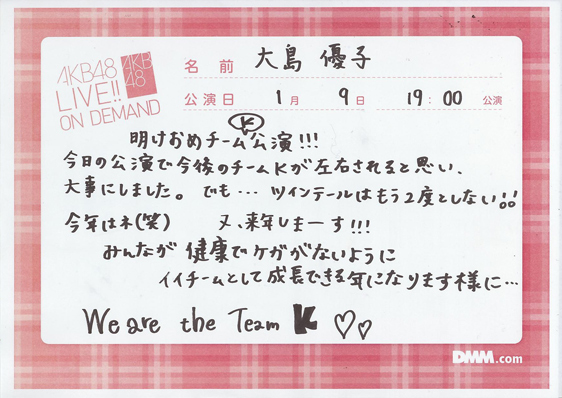 AKB48
LIVE!!
ON DEMAND
AKB
48
名前 大島 優子
公演日 1月 9日 19:00 公演
明けおめチームK公演!!!
今日の公演で今後のチームKが左右されると思い、
大事にしました。でも… ツインテールはもう2度としない!!
今年はネ(笑) 又、来年しまーす!!!
みんなが 健康でケガがないように
イイチームとして成長できる年になります様に…
We are the Team K ♡♡
DMM.com